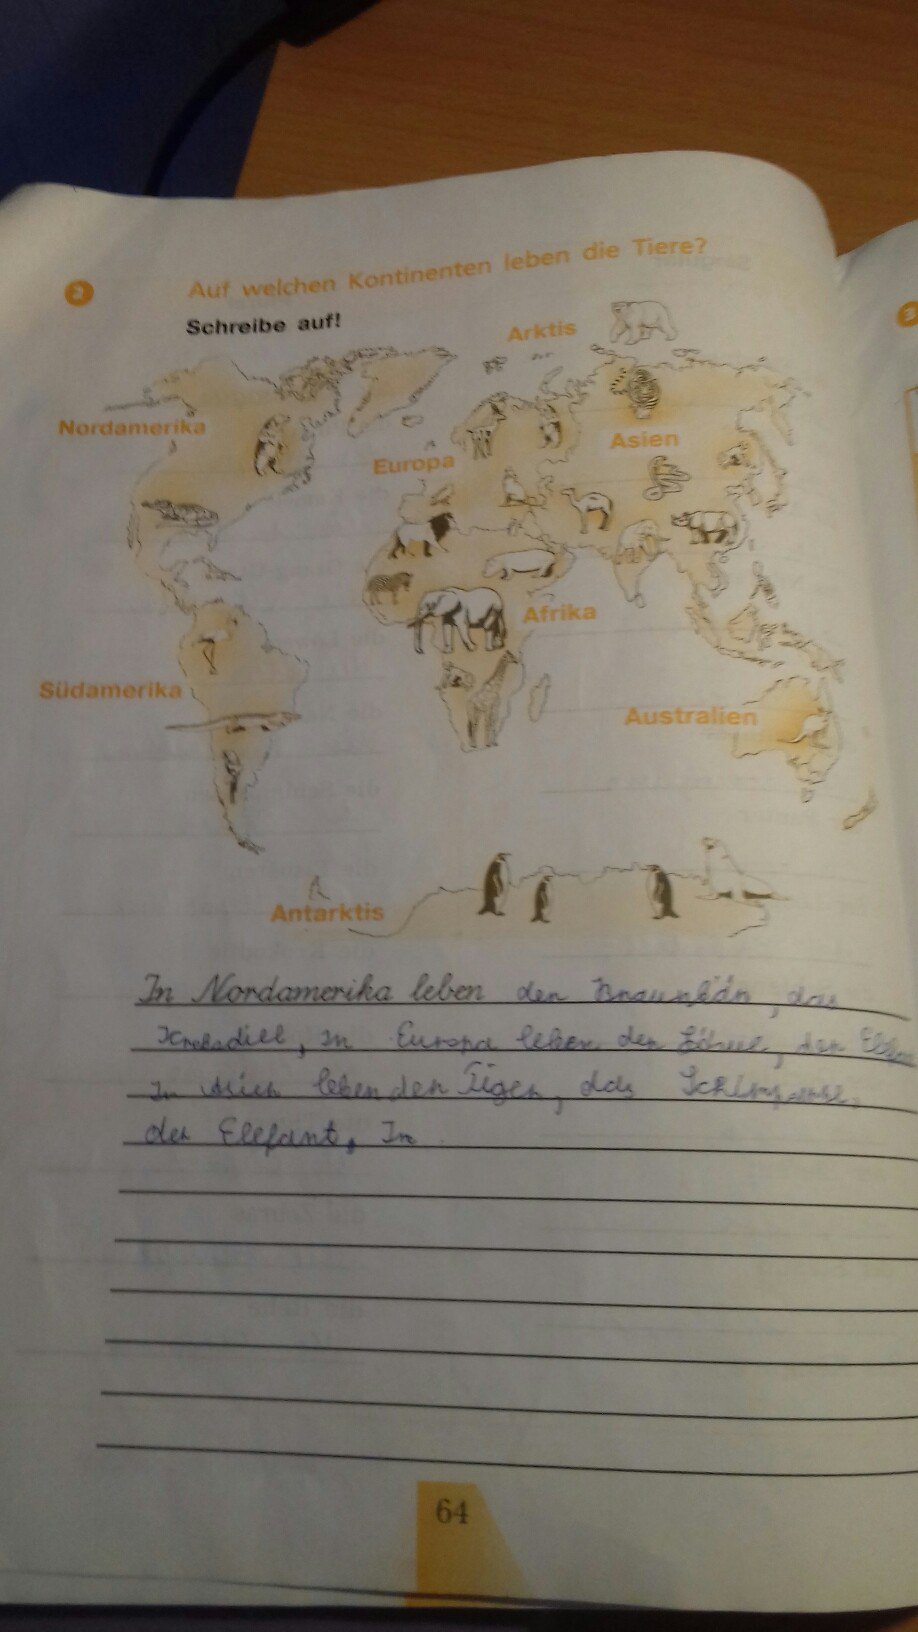 2 Auf welchen Kontinenten leben die Tiere?
Schreibe auf!
Arktis
Nordamerika
Europa
Asien
Afrika
Südamerika
Australien
Antarktis
In Nordamerika leben der Braunbär, das
Krokodiel, in Europa leben der Löwe, der
In Asien leben der Tiger, das Schimpanse,
der Elefant, In
64